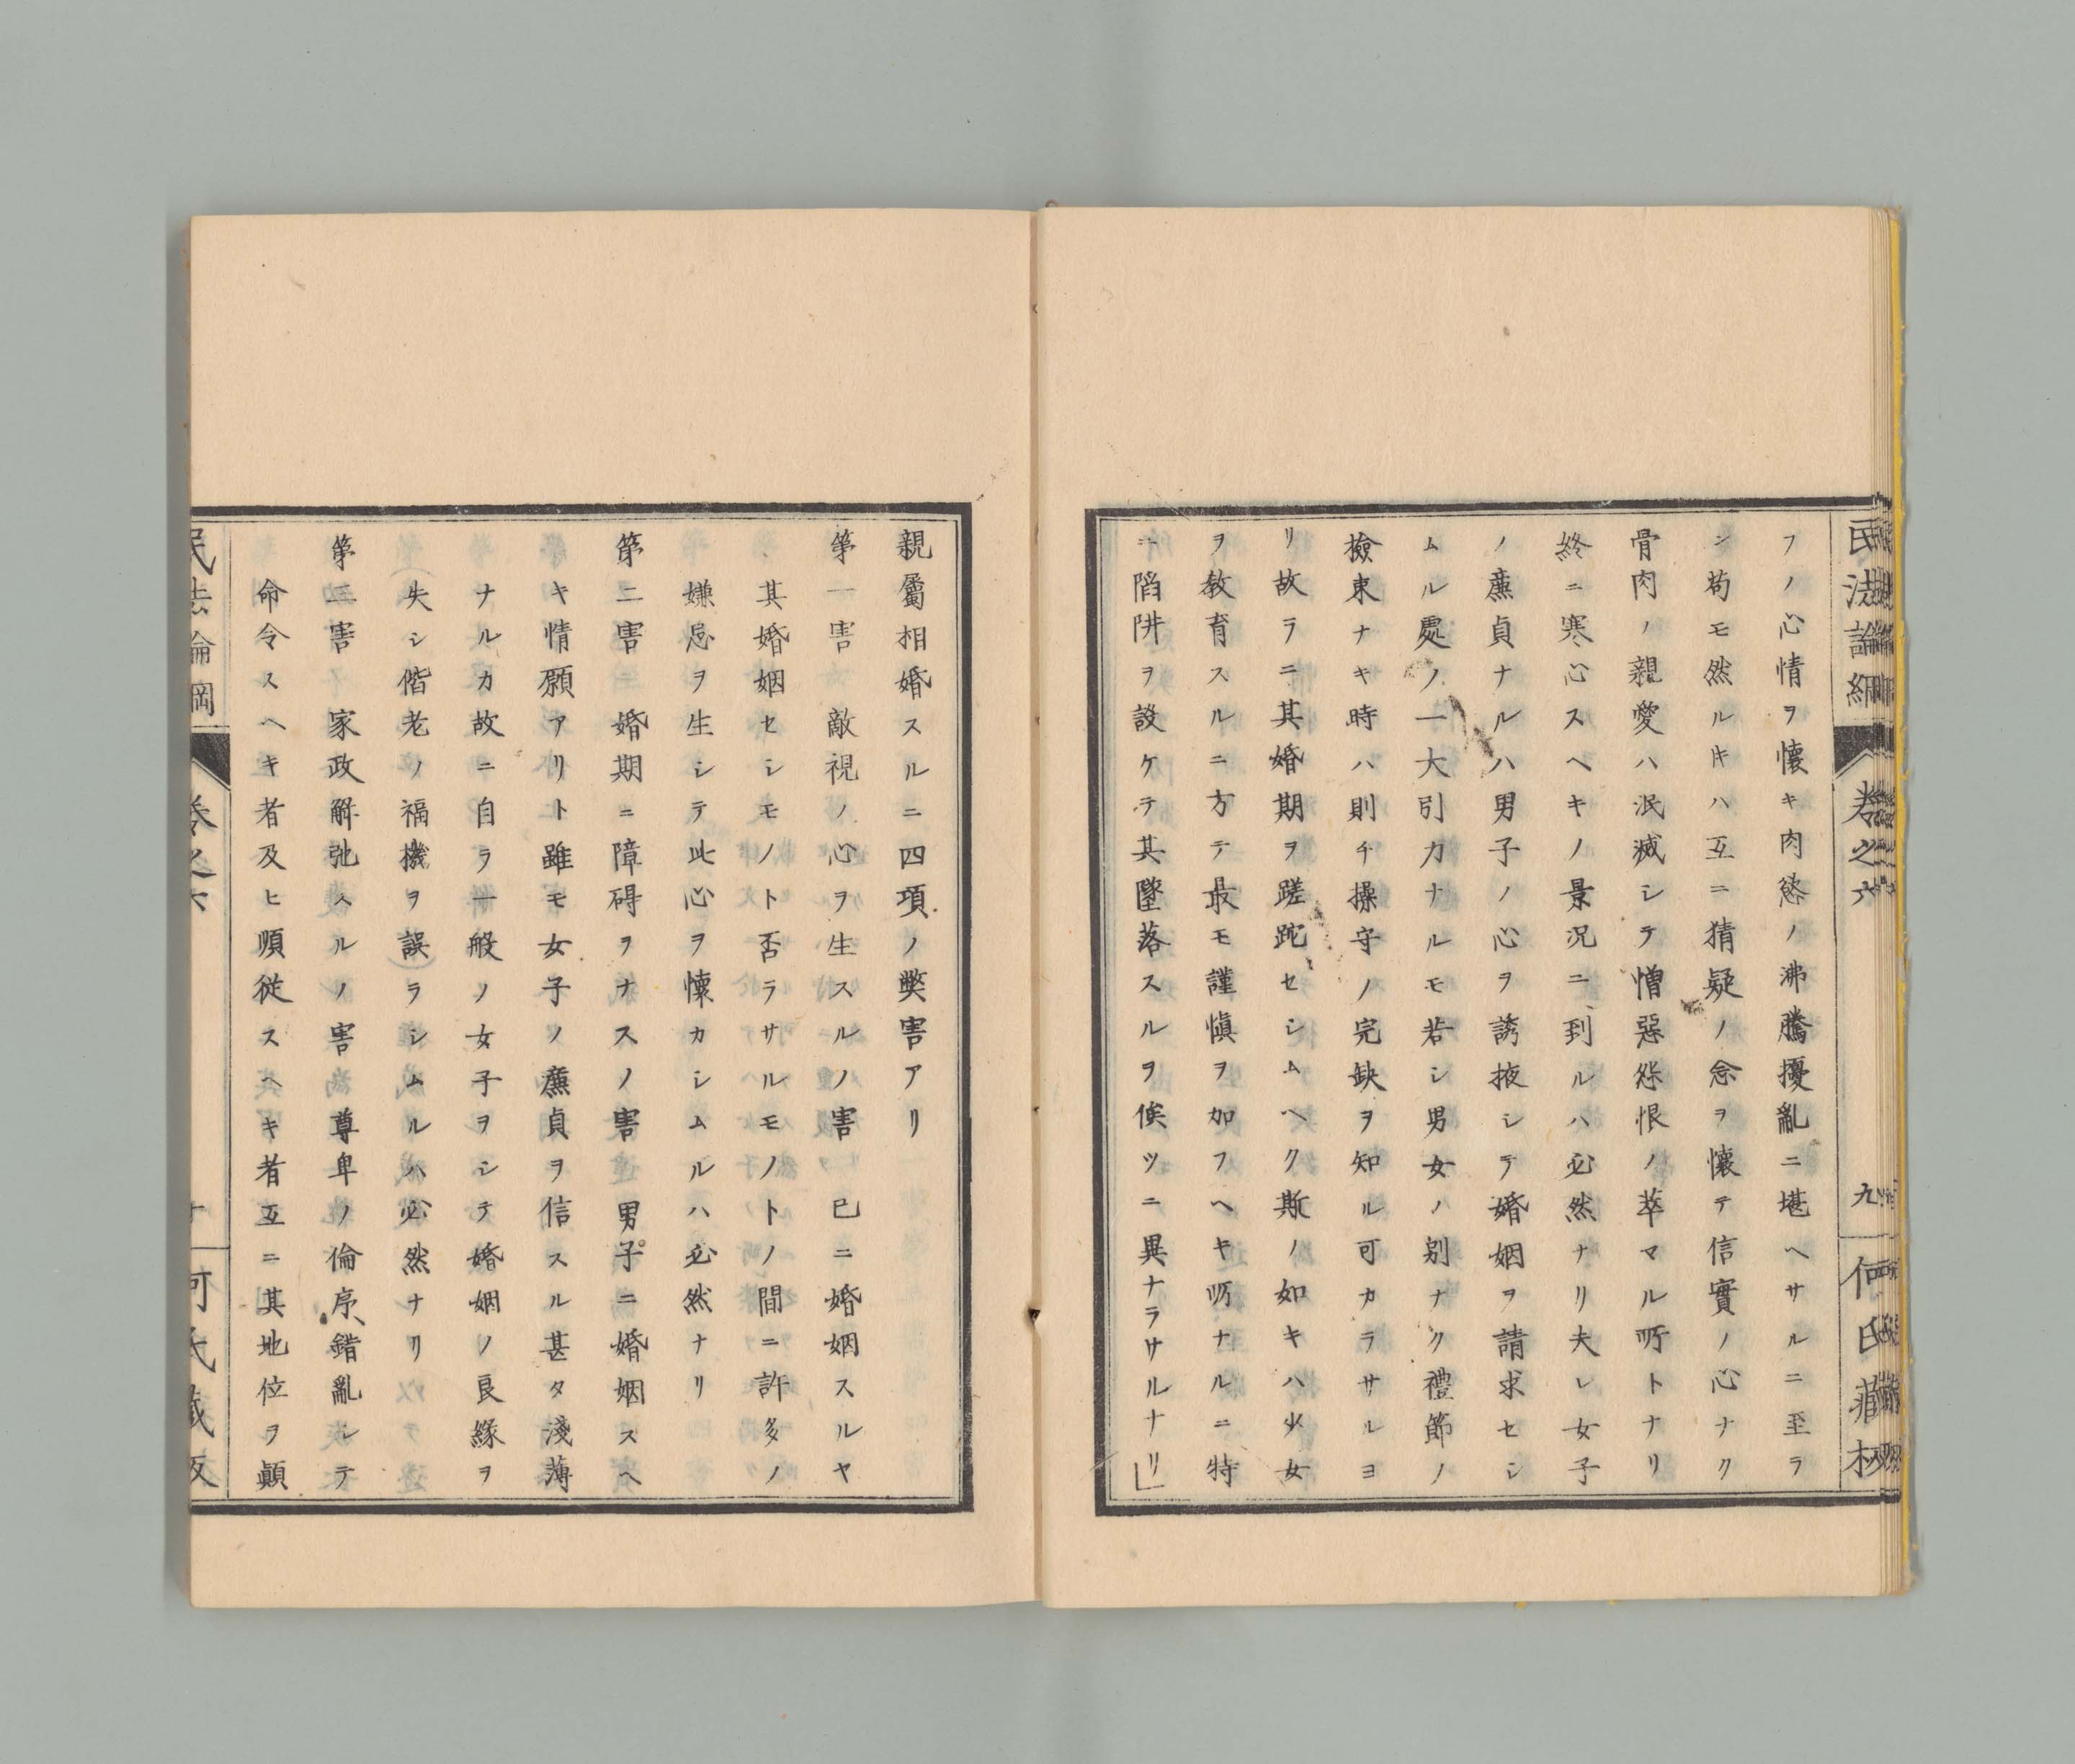 民法論綱
卷之六
九
何氏藏板
フノ心情ヲ懷キ肉慾ノ沸騰擾亂ニ堪ヘサルニ至ラ
シ苟モ然ルキハ互ニ猜疑ノ念ヲ懷テ信實ノ心ナク
骨肉ノ親愛ハ泯滅シテ憎惡怨恨ノ萃マル所トナリ
終ニ寒心スヘキノ景況ニ到ルハ必然ナリ夫レ女子
ノ廉貞ナルハ男子ノ心ヲ誘掖シテ婚姻ヲ請求セシ
ムル處ノ一大引力ナルモ若シ男女ノ別ナク禮節ノ
撿束ナキ時ハ則チ操守ノ完缺ヲ知ル可カラサルヨ
リ故ラニ其婚期ヲ蹉跎セシムヘク斯ノ如キハ少女
ヲ敎育スルニ方テ最モ謹愼ヲ加フヘキ所ナルニ特
ニ陷阱ヲ設ケテ其墜落スルヲ俟ツニ異ナラサルナリ」
親屬相婚スルニ四項ノ弊害アリ
第一害 敵視ノ心ヲ生スルノ害 已ニ婚姻スルヤ
其婚姻セシモノト否ラサルモノトノ間ニ許多ノ
嫌忌ヲ生シテ此心ヲ懷カシムルハ必然ナリ
第二害 婚期ニ障碍ヲナスノ害 男子ニ婚姻スヘ
キ情願アリト雖モ女子ノ廉貞ヲ信スル甚タ淺薄
ナルカ故ニ自ラ一般ノ女子ヲシテ婚姻ノ良緣ヲ
失シ偕老ノ福機ヲ誤ラシムルハ必然ナリ
第三害 家政解弛スルノ害 尊卑ノ倫序錯亂シテ
命令スヘキ者及ヒ順從スヘキ者互ニ其地位ヲ顚
民法論綱
卷之六
十
何氏藏板